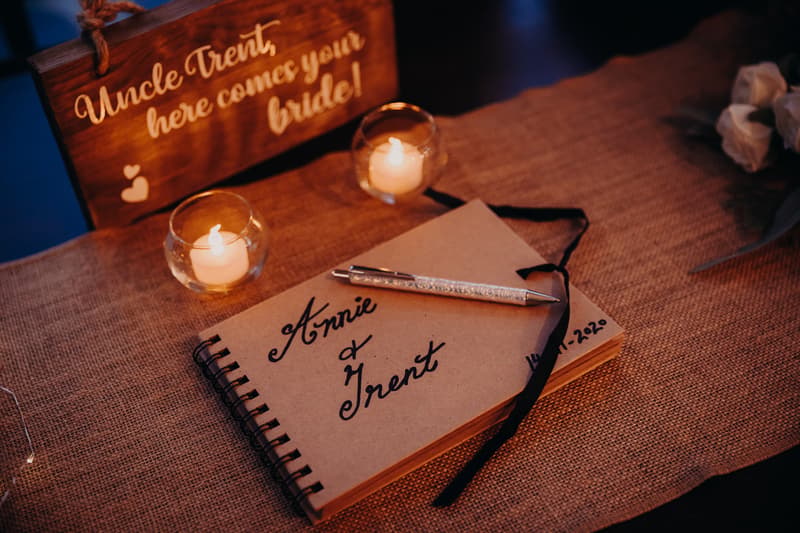 Uncle Trent,
here comes your
bride!
Annie
&
Trent